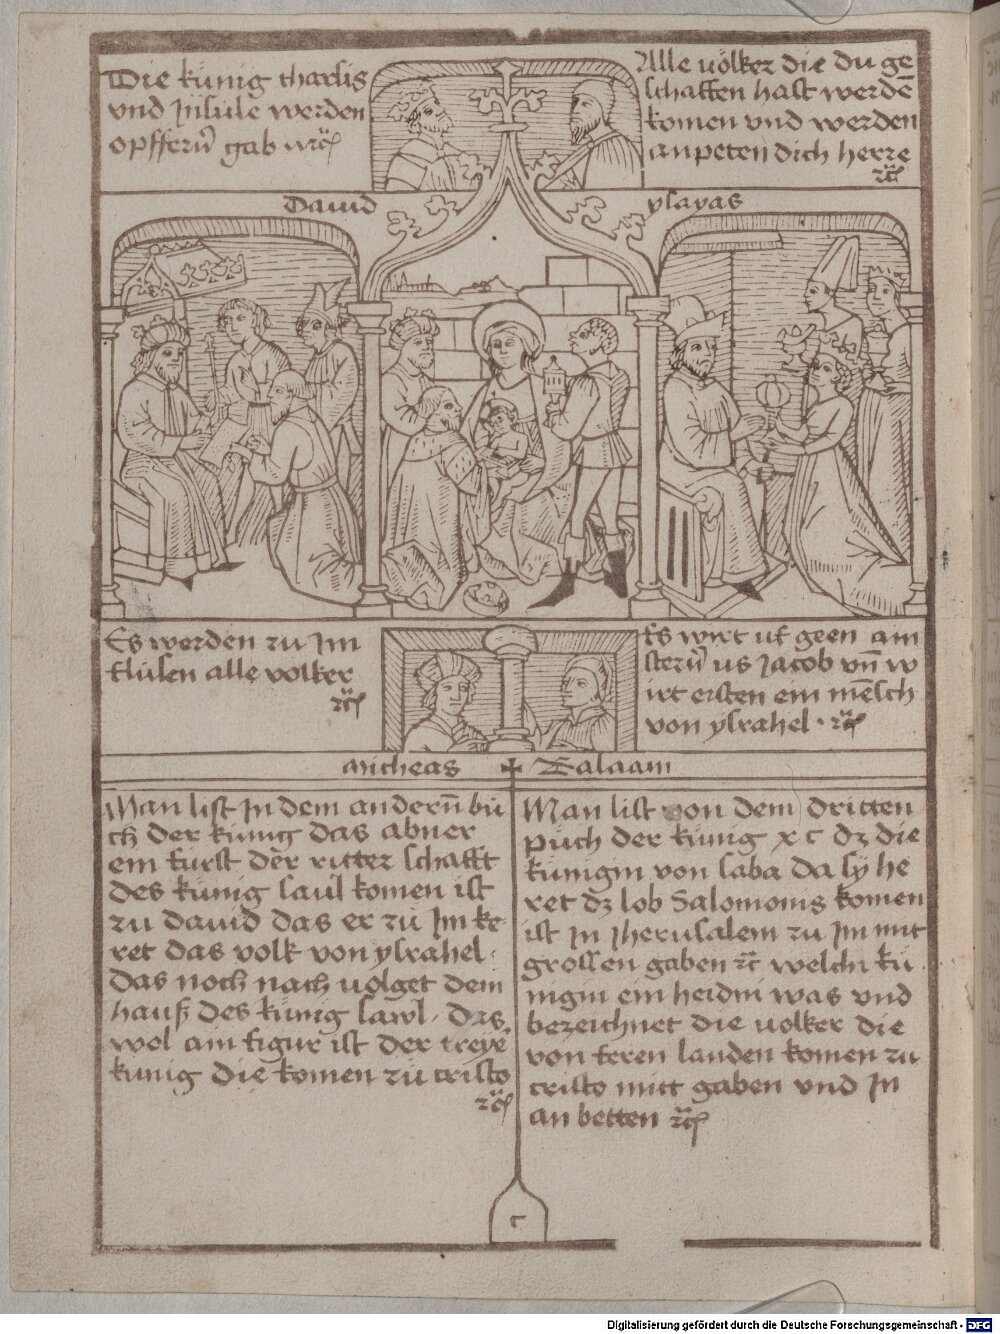 Die künig tharsis
vnd Jnsule werden
opfferñ gab
Alle uölker die du ge
schaffen hast werdē
komen vnd werden
anpeten dich herre
Dauid
ysayas
Es werden zu Jm
flüsen alle volker
Es wirt uf geen ain
sterñ us Jacob vñ w
irt ersten ein mēsch
von ysrahel ·
Micheas
Balaam
Man list Jn dem anderñ bů
ch der künig das abner
ein fürst der ritter schafft
des künig saul komen ist
zu dauid das er zů Jm ke-
ret das volk von ysrahel ·
das noch nach uolget dem
hauß des künig sawl · das
wol ain figur ist der treye
kunig die komen zů cristo
Man list von dem dritten
půch der künig x c dz die
künigin von saba da sy he
ret dz lob Salomonis komen
ist Jn Jherusalem zu Jm mit
grossen gaben ꝛc welch kü
nigin ein heidni was vnd
bezeichnet die uolker die
von feren landen komen zu
cristo mitt gaben vnd Jn
an betten ꝛc
c
Digitalisierung gefördert durch die Deutsche Forschungsgemeinschaft - DFG